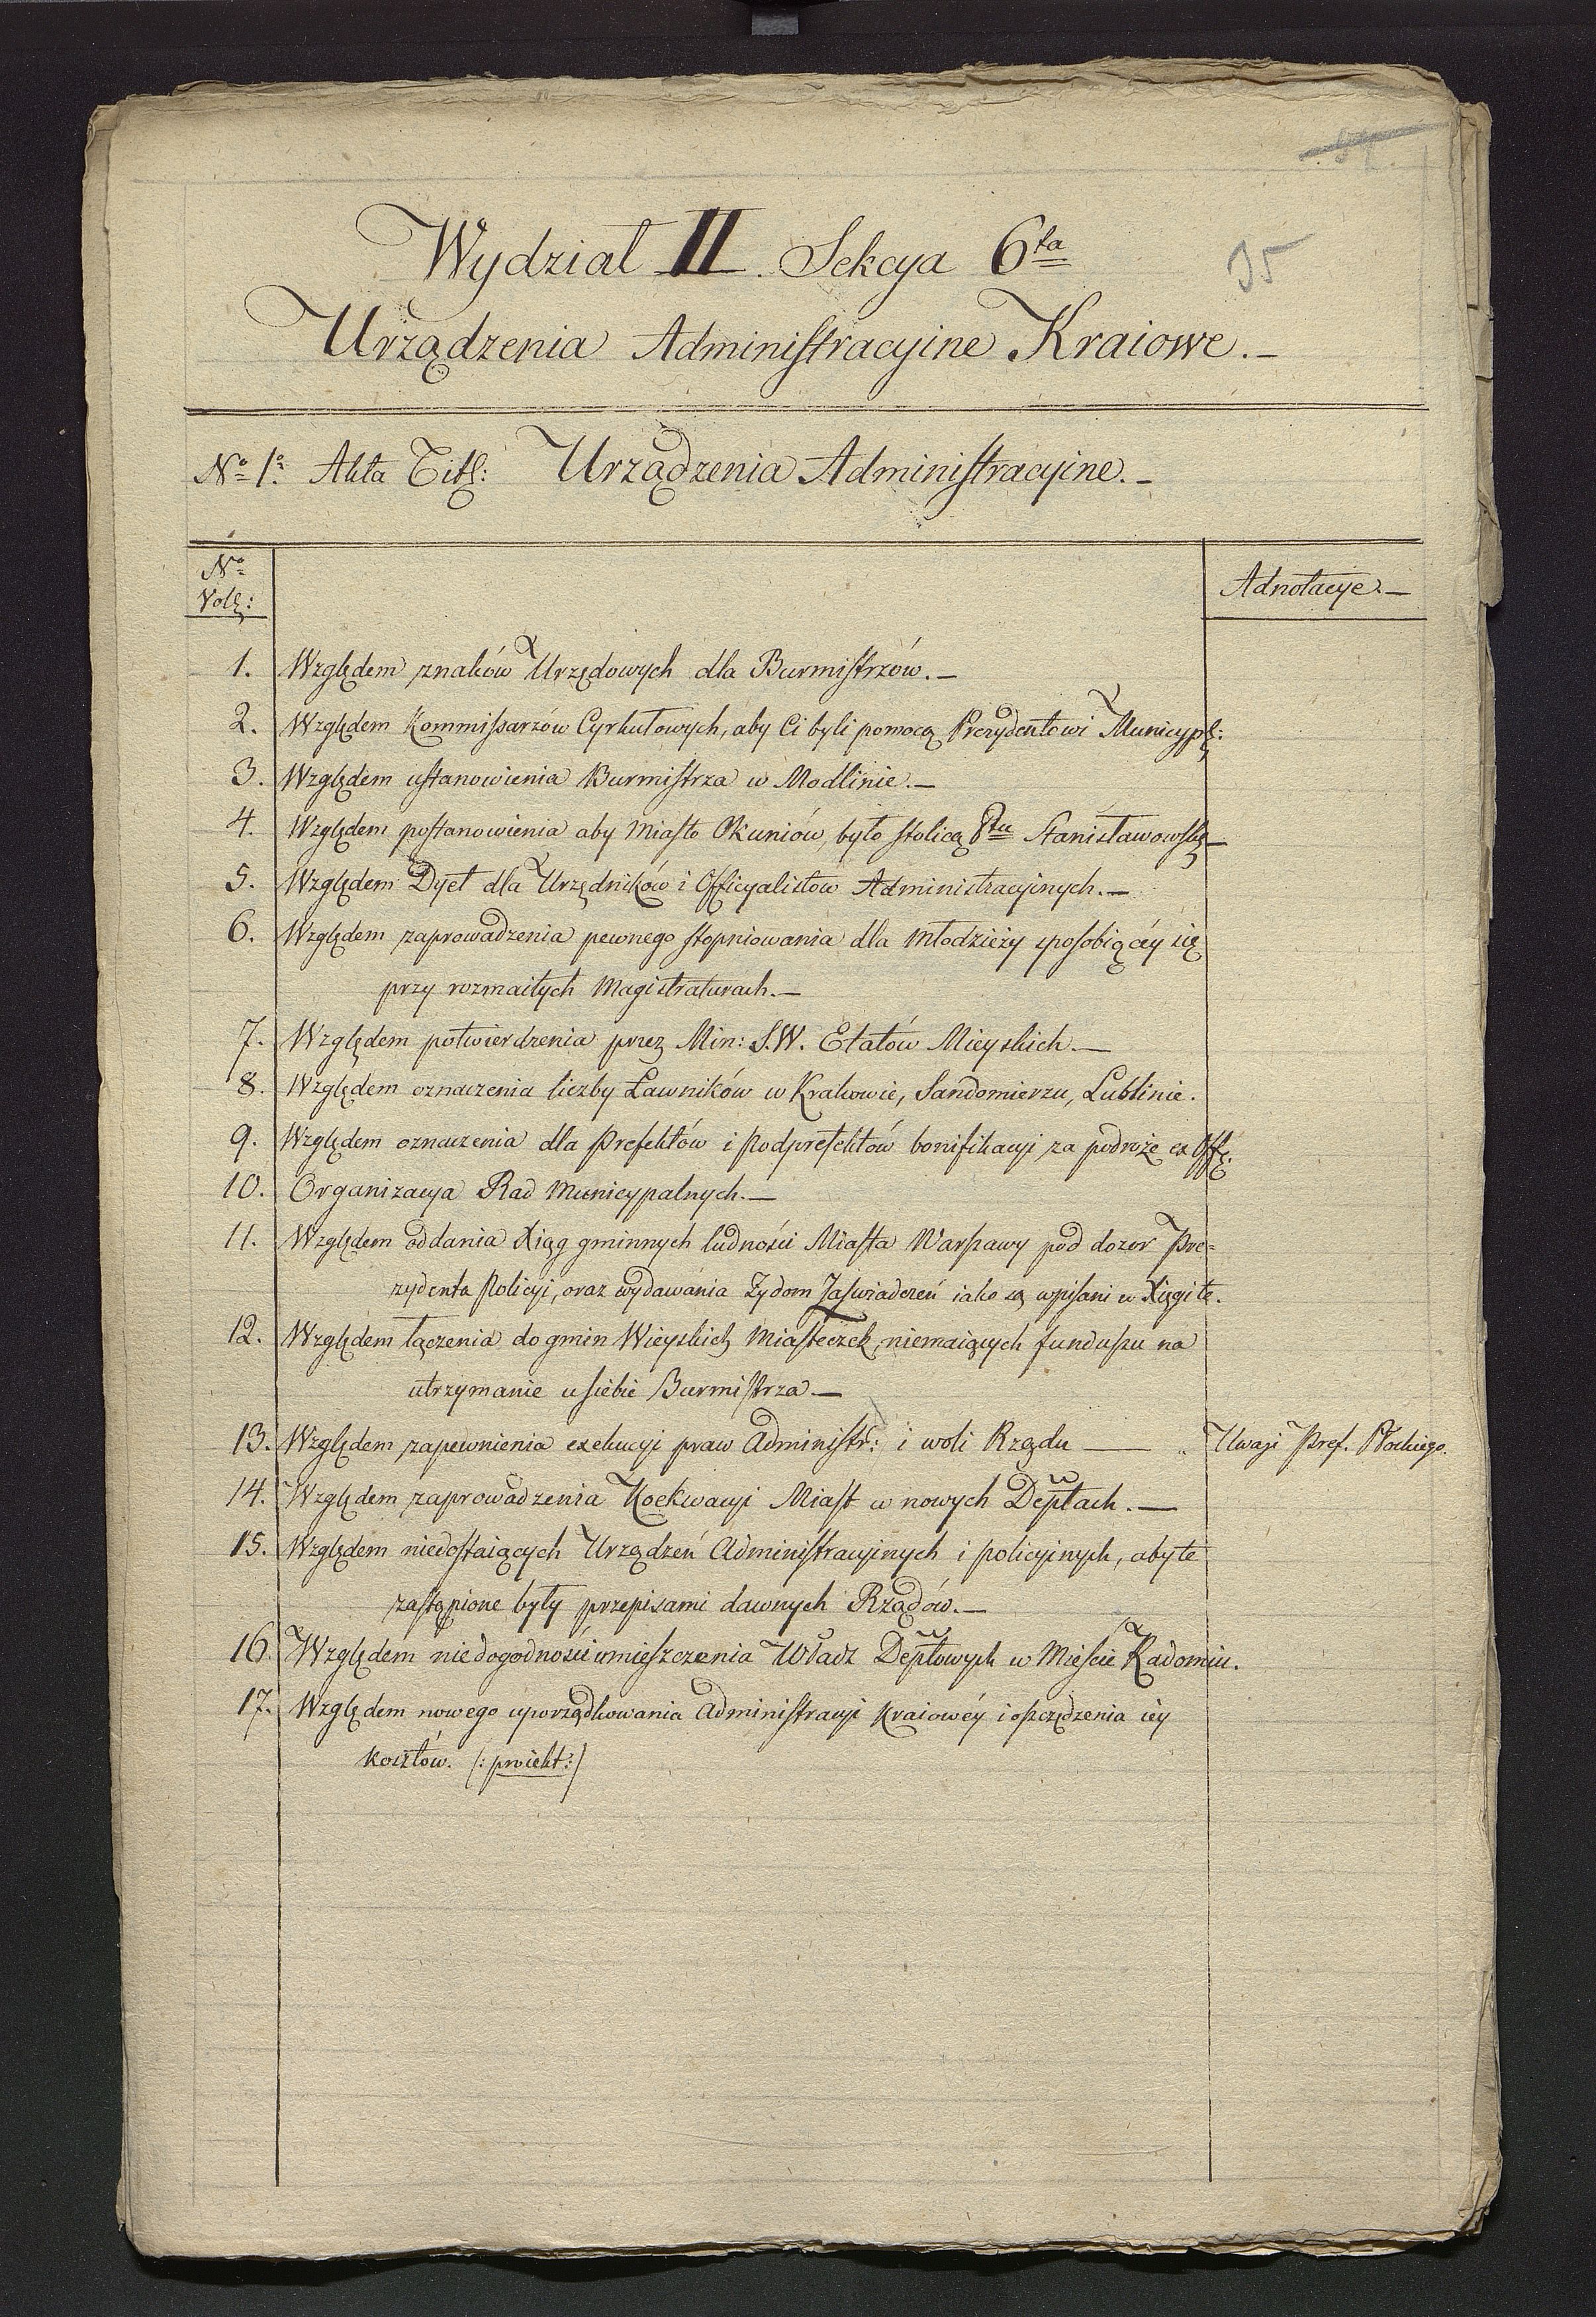 35
Wydział II. Sekcya 6ta
Urządzenia Administracyine Kraiowe.—
No 1o. Akta Titl: Urządzenia Administracyine.—
No
Vol:
Adnotacye.—
1. Względem znaków Urzędowych dla Burmistrzów.—
2. Względem Kommissarzów Cyrkułowych, aby Ci byli pomocą Prezydentowi Municyp:
3. Względem ustanowienia Burmistrza w Modlinie.—
4. Względem postanowienia aby Miasto Okuniów, było stolicą Ptu Stanisławowsk:—
5. Względem Dyet dla Urzędników i Officyalistów Administracyinych.—
6. Względem zaprowadzenia pewnego stopniowania dla Młodzieży sposobiącéy się
przy rozmaitych Magistraturach.—
7. Względem potwierdzenia przez Min: S.W. Etatów Mieyskich.—
8. Względem oznaczenia liczby Ławników w Krakowie, Sandomierzu, Lublinie.
9. Względem oznaczenia dla Prefektów i Podprefektów bonifikacyi za podróże ex Off:
10. Organizacya Rad Municypalnych.—
11. Względem oddania Xiąg gminnych ludności Miasta Warszawy pod dozor Pre=
zydenta Policyi, oraz wydawania Żydom Zaświadczeń iako są wpisani w Xięgi te.
12. Względem łączenia do gmin Wieyskich Miasteczek, niemaiących funduszu na
utrzymanie u siebie Burmistrza.—
13. Względem zapewnienia exekucyi praw Administr: i woli Rządu — Uwagi Pref. Płockiego.
14. Względem zaprowadzenia Koekwacyi Miast w nowych Deptach.—
15. Względem niedostaiących Urządzeń Administracyinych i policyinych, aby te
zastąpione były przepisami dawnych Rządów.—
16. Względem niedogodności umieszczenia Władz Deptowych w Mieście Radomiu.
17. Względem nowego uporządkowania Administracyi Kraiowéy i oszczędzenia iéy
kosztów. (:proiekt:)